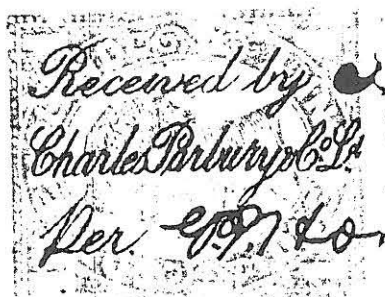 Received by
Charles Parbury & Co. Ld.
Per.